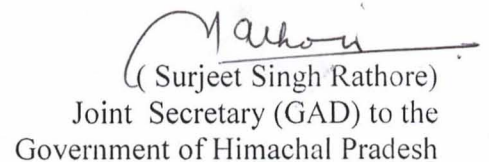 Rathore
( Surjeet Singh Rathore)
Joint Secretary (GAD) to the
Government of Himachal Pradesh